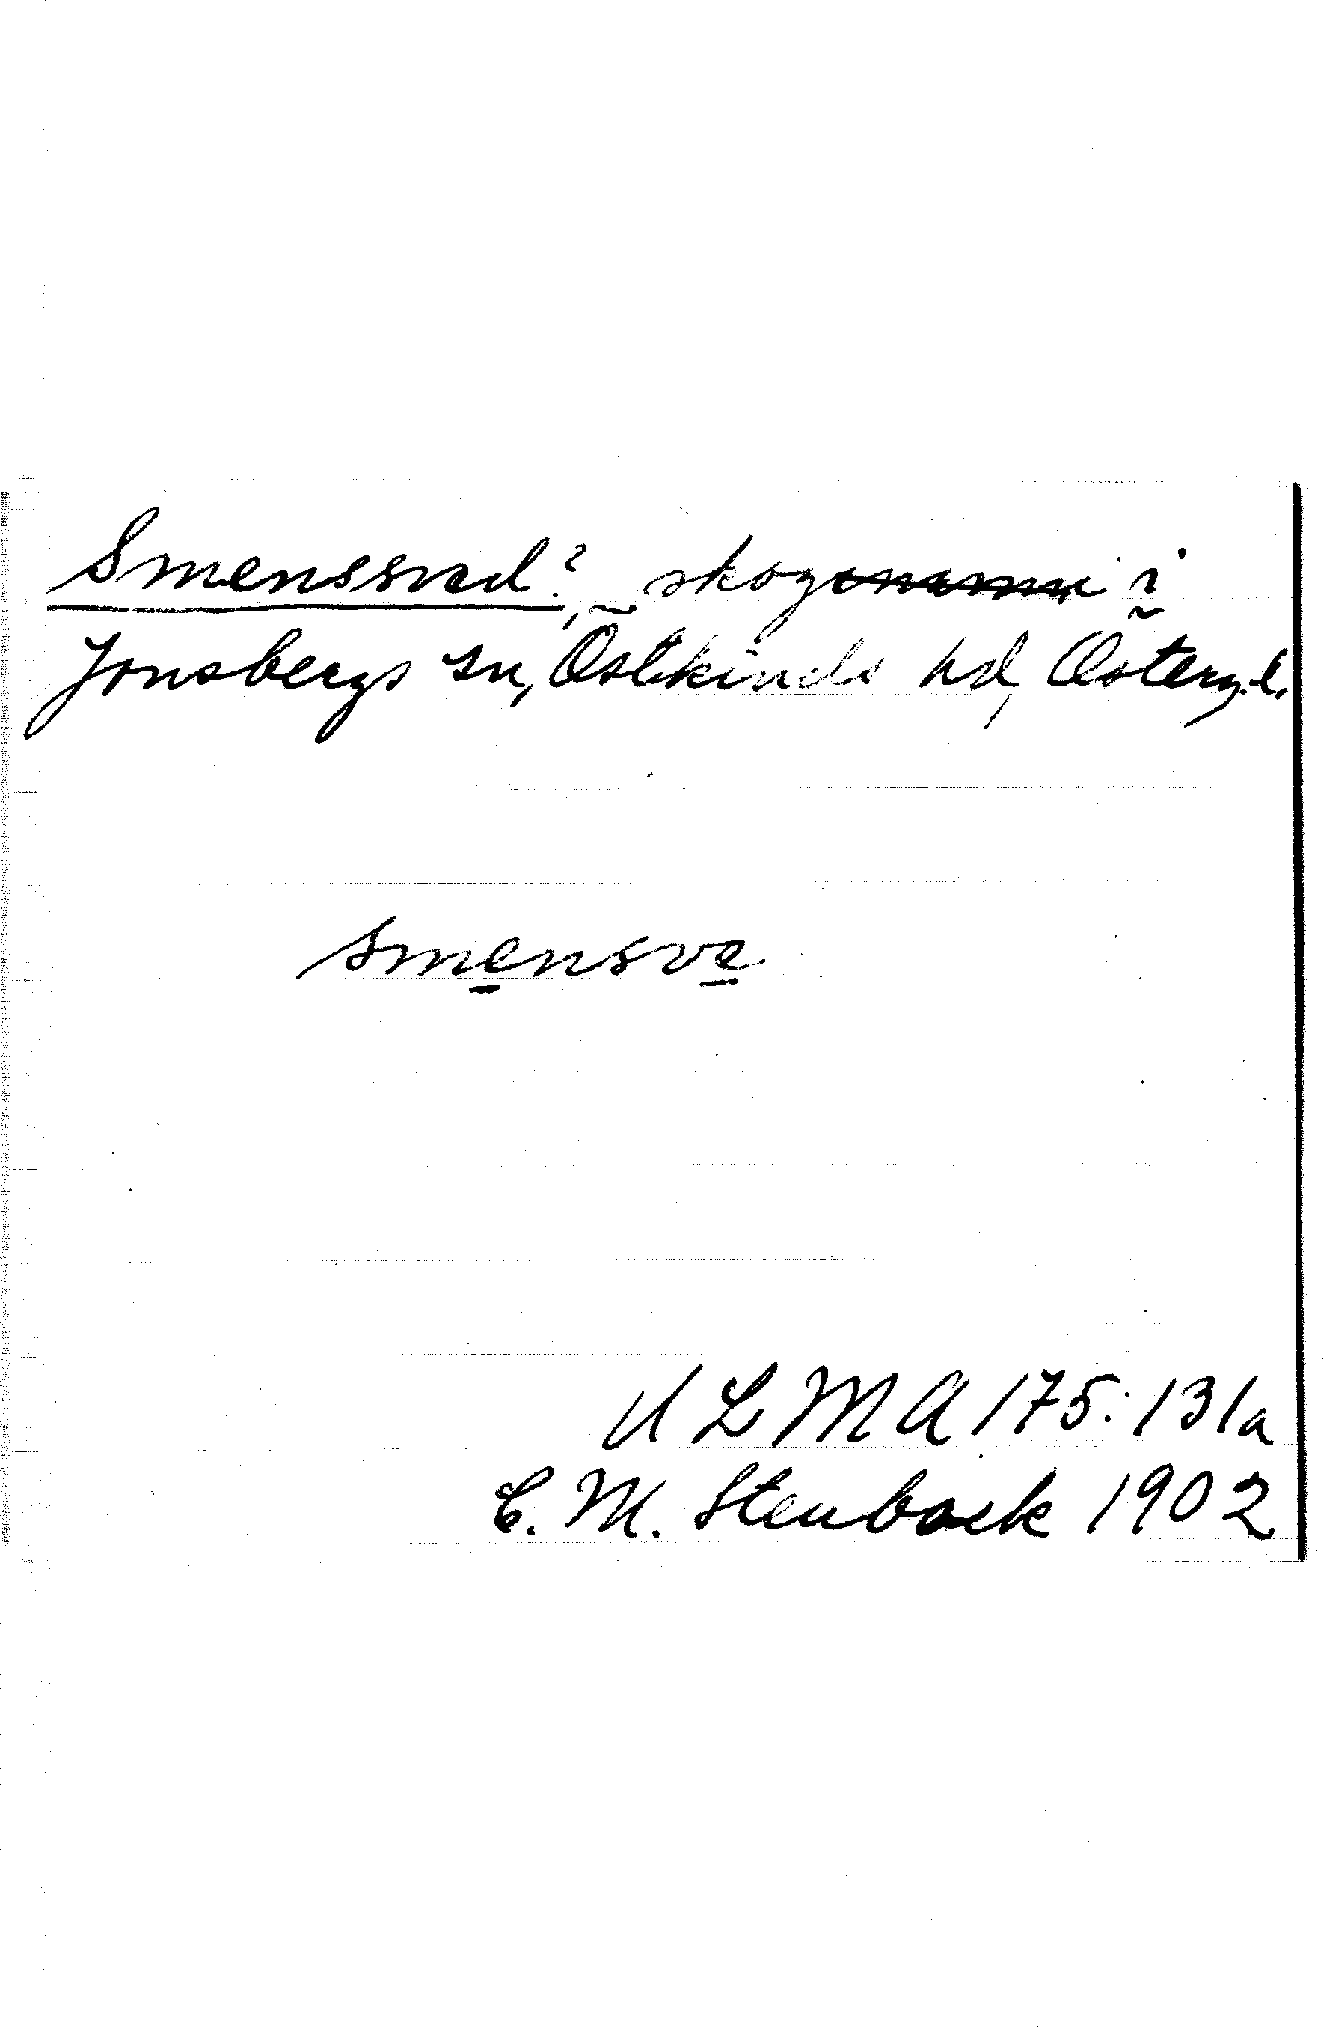 Smenssved?, skog i
Jonsbergs sn, Östkinds hd, Österg.l.
smensve
ULMA 175:131a
C. M. Stenbock 1902